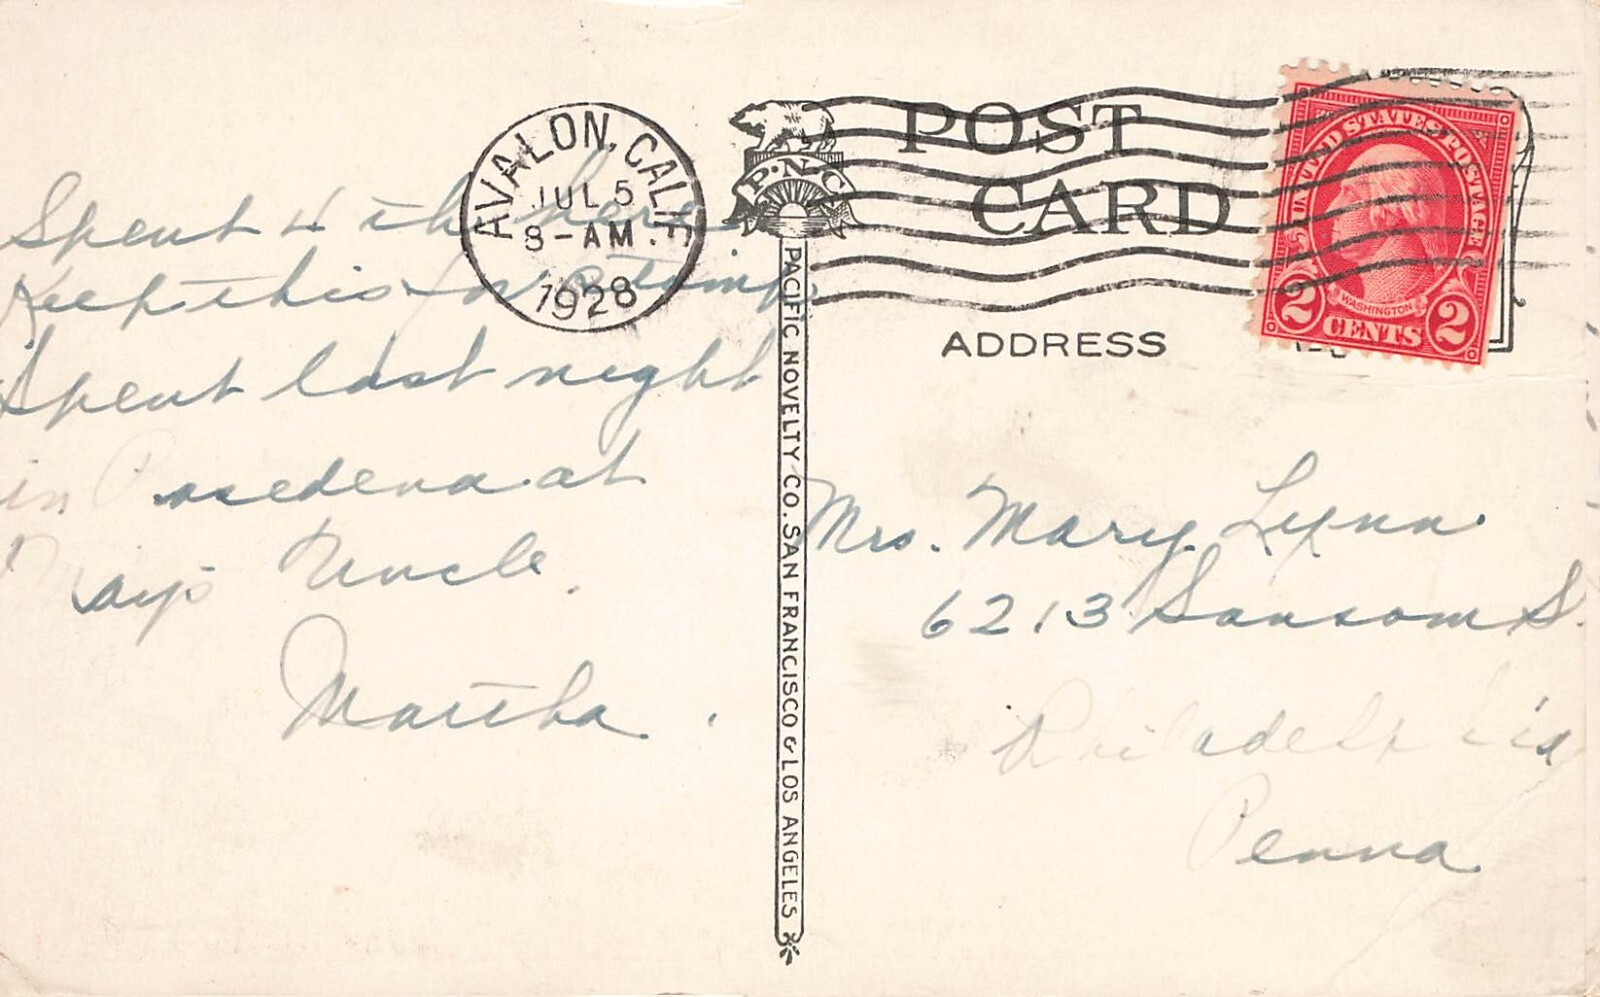 Spent 4 th here
Keep this for stamp.
Spent last night
in Pasedena at
May's Uncle.
Martha.
AVALON, CALIF.
JUL 5
8-AM
1928
P.N.C.
PACIFIC NOVELTY CO. SAN FRANCISCO & LOS ANGELES
POST
CARD
ADDRESS
UNITED STATES POSTAGE
WASHINGTON
2 CENTS 2
Mrs. Mary Lynn
6213 Sansom S.
Philadelphia
Penna